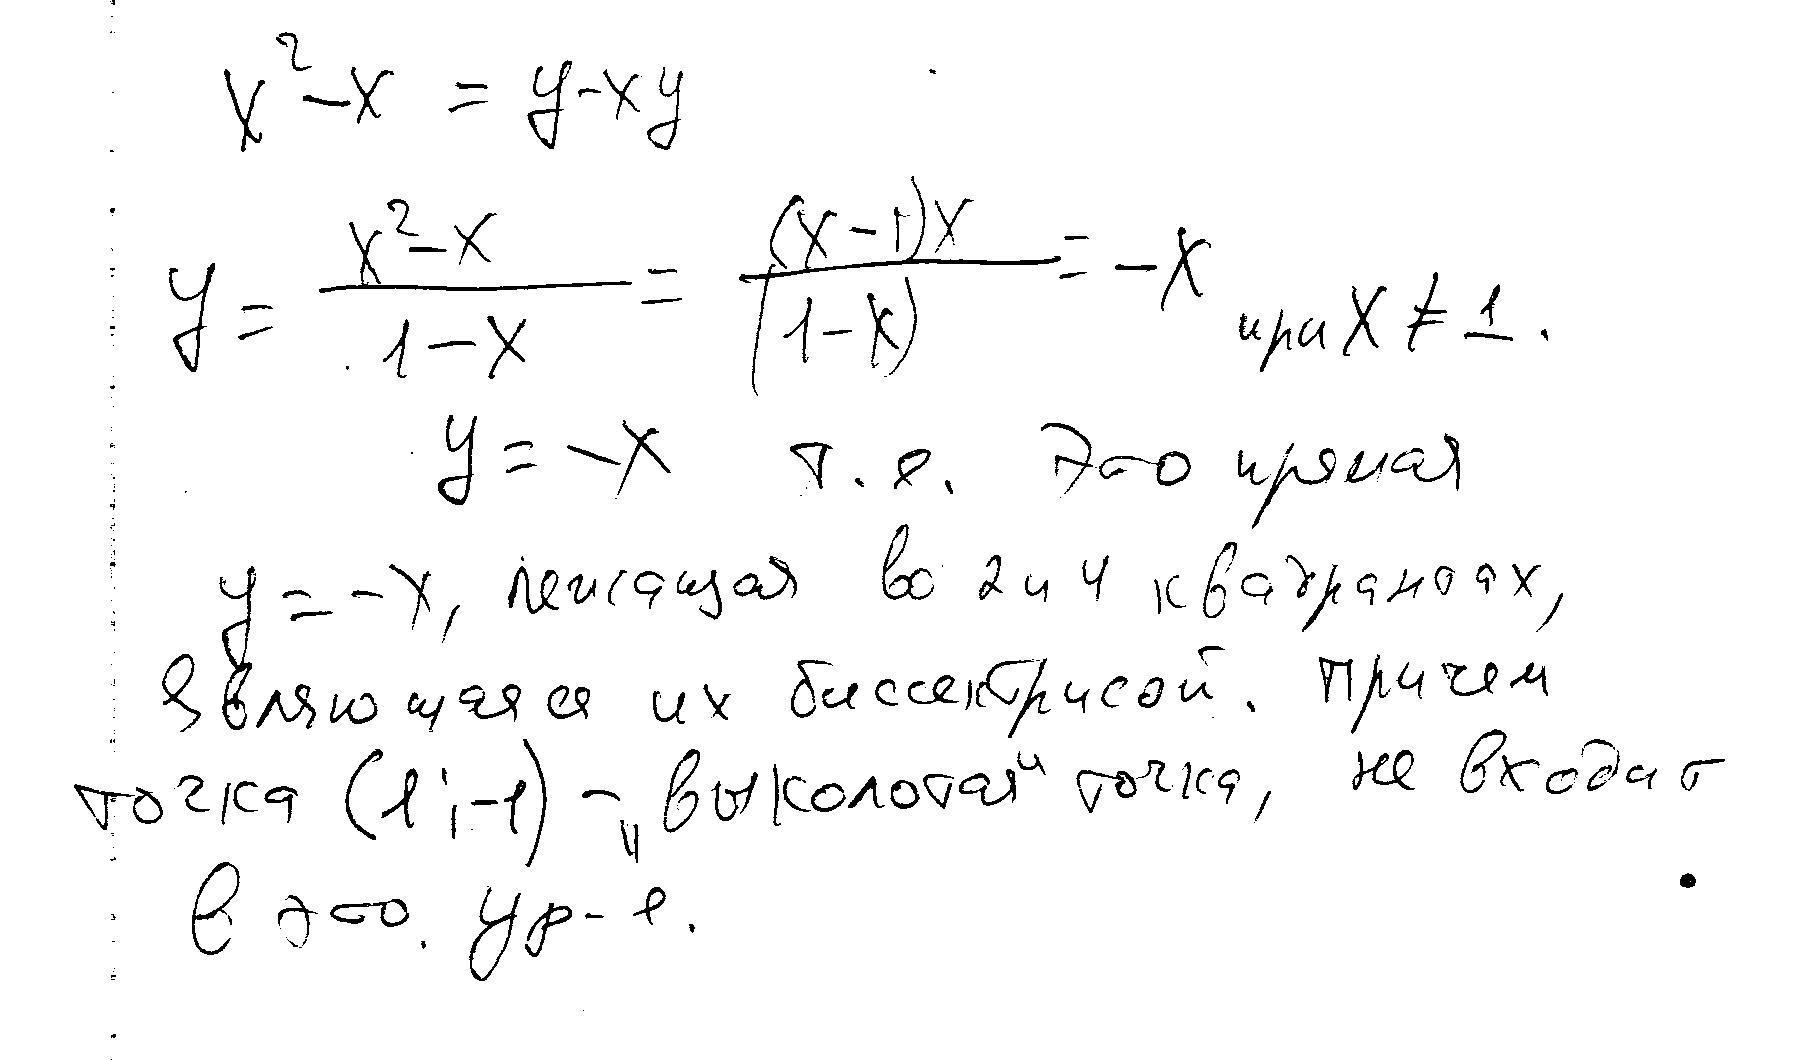 x² - x = y - xy
y = (x² - x)/(1 - x) = ((x - 1)x)/(1 - x) = -x при x ≠ 1.
y = -x т.е. Это прямая
y = -x, лежащая во 2 и 4 квадрантах,
являющаяся их биссектрисой. Причем
точка (1; -1) - „выколотая“ точка, не входит
в это. ур-е.